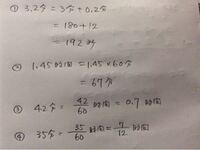 ① 3.2分 = 3分 + 0.2分
= 180 + 12
= 192秒
② 1.45時間 = 1.45 × 60分
= 67分
③ 42分 = 42/60 時間 = 0.7時間
④ 35分 = 35/60 時間 = 7/12 時間